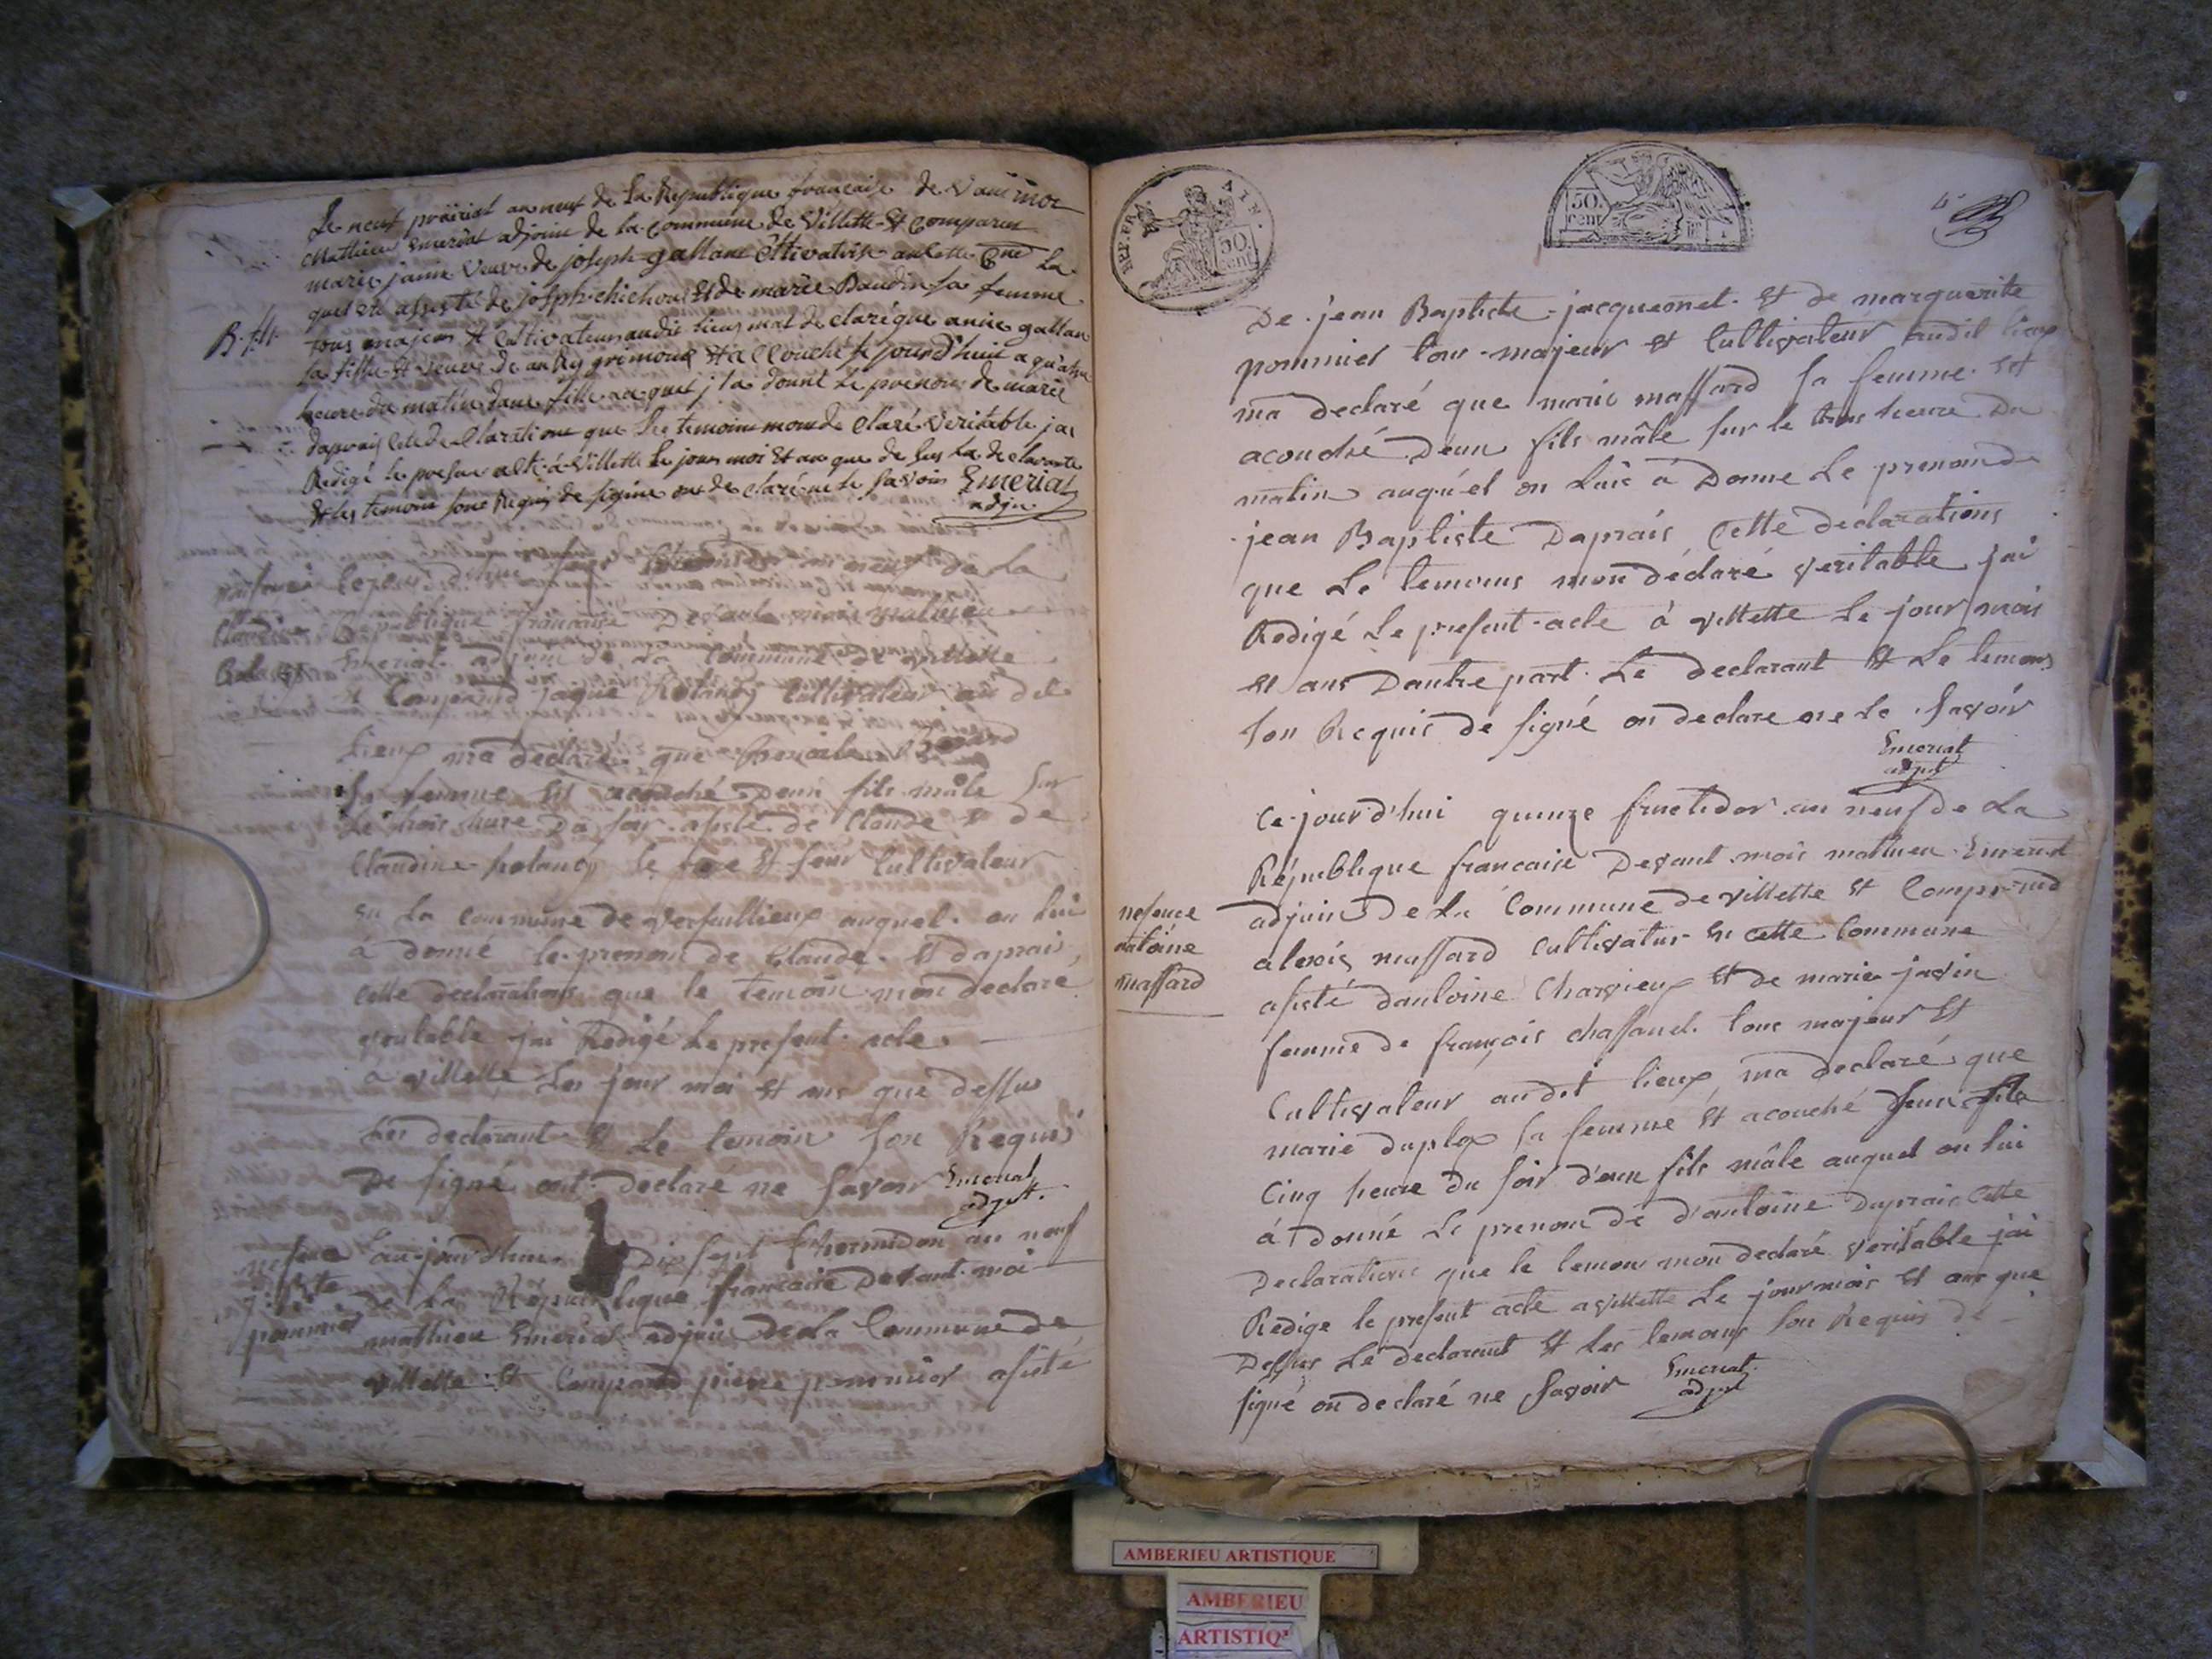 Le neuf prairial an neuf de La Republique francaise de vant moi
Mathieu Emeriat adjoint de la commune de Villette Et Comparu
marie janin veuve de joseph gallan
quel Est assisté de joseph chichou Et de marie Baudin sa femme
tous majeur Et Cultivateur audit lieux mat de claréque anne gallan
B. fil.
sa fille Et veuve de grimoud Et a Couché le jourd'huit a quatre
heure du matin dune fille a quel j la donné Le prenom de marie
daprais Cete de Claration que Les temoins mon de Claré veritable jai
Redigé Le presan acte à Villette Le jour moi Et an que de sus La de clarante
Et les temoins son Requis de signe on de claré ne Le savoir Emeriat
adjn
an neuf de La
Claudine Republique francaise Devant mois mathieu
Rolandy Emeriat adjoin de La Commune de villette
Et Comparend jaque Rolandy Cultivateur au dit
Lieux ma declaré que
sa femme Est acouché Deun fils mâle sur
Le trois heure Du soir asisté de Claude Et de
Claudine Rolandy le frere Et seur Cultivateur
En La Commune de Versaillieux auquel on lui
à donné le prenom de Claude Et daprais
Cette declarations que le temoin mon declaré
veritable jai Redigé Le present acte
a villette Les jour moi Et ans que dessus
Les declarant Et Le temoin son Requis
De signé ont declaré ne savoir Emeriat
adjot.
nesence au-jourd'hui Dix sept thermidor an neuf
j. bte de La Republique francaise Devant moi
pommier mathieu Emeriat adjoin de La Commune de
villette Et Comparend pierre pommier asisté
REP. FRA. 50. cent
50. cent
De jean Baptiste jacquemet Et de marguerite
pommier tous majeur Et Cultivateur audit lieux
ma declaré que marie massard sa femme Est
acouché Deun fils mâle sur le trois heure Du
matin auquel on Luis à Donné Le prenom de
jean Baptiste Daprais Cette declarations
que Le temoins mon déclaré veritable jai
Redigé Le present acte à villette Le jour mois
Et ans Dautre part. Le declarant Et Le temoins
son Requis de signé on declare ne Le savoir
Emeriat
adjot
Ce-jourd'hui quinze fructidor an neuf de La
République francaise Devant mois mathieu Emeriat
nesence adjoin De La Commune de villette Et Comparend
antoine alexis massard Cultivatur En cette Commune
massard asisté dantoine Charvieux Et de marie javin
femme de françois chassand tous majeur Et
Cultivateur audit lieux ma declaré que
marie duplex sa femme Et acouché deun fils
Cinq heure du soir d'eun fils mâle auquel on lui
à donné Le prenom de d'antoine Daprais Cette
Declarations que le temoins mon declaré veritable jai
Redige le present acte a villette Le jour mois Et ans que
Dessus Le declarant Et Les temoins son Requis de
signé on declaré ne savoir Emeriat
adjot
AMBERIEU ARTISTIQUE
AMBERIEU
ARTISTIQ